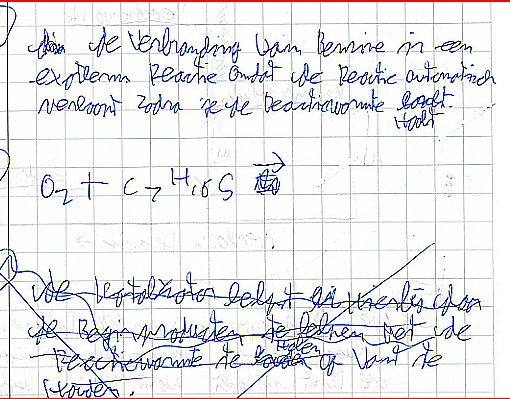 de Verbranding Van Benzine is een
exotherm Reactie omdat de Reactie automatisch
verloopt zodra ze de Reactiewarmte
Haalt
O2 + C7H16S →
de Katalysator helpt
de Beginproducten te helpen met de
Reactiewarmte te Halen of Vast te
Houden.